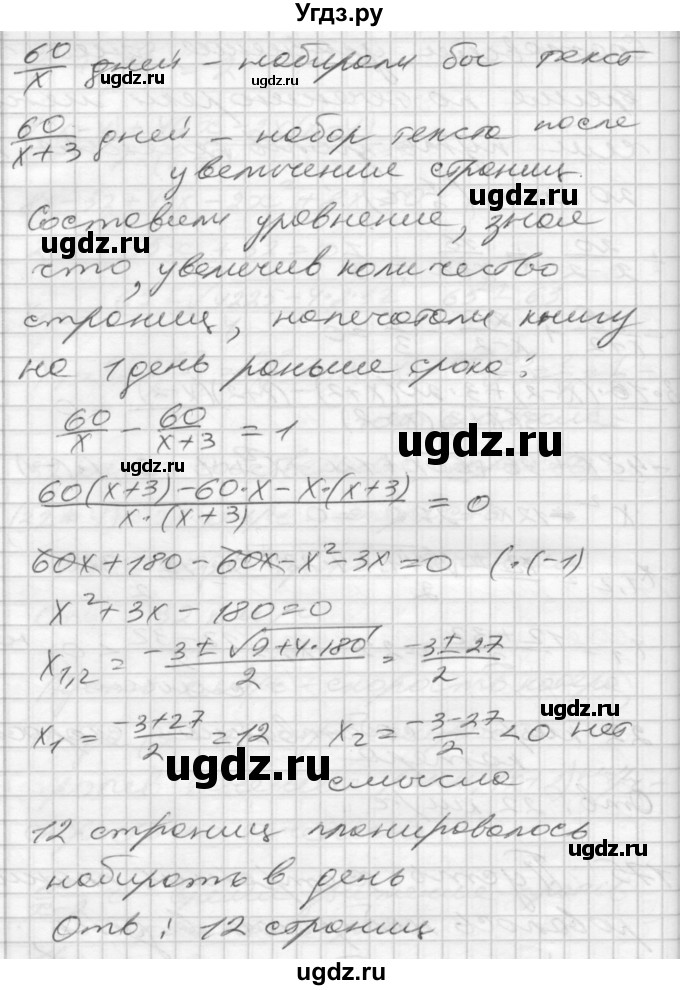 Угдз.ру
60/x дней – набирали бы текст
ugdz.ru ugdz.ru
60/(x+3) дней – набор текста после
увеличения страниц.
ugdz.ru
Составили уравнение, зная
ugdz.ru
что, увеличив количество
страниц, напечатали книгу
на 1 день раньше срока:
60/x − 60/(x+3) = 1
ugdz.ru
ugdz.ru
(60(x+3)−60·x−x·(x+3))/(x·(x+3)) = 0
60x+180−60x−x²−3x=0 (·(−1)
x²+3x−180=0
ugdz.ru
x1,2 = (−3±√(9+4·180))/2 = (−3±27)/2
ugdz.ru
x1 = (−3+27)/2 = 12 x2 = (−3−27)/2 <0 нет
ugdz.ru
ugdz.ru
смысла
12 страниц планировалось
ugdz.ru
набирать в день
Отв: 12 страниц
ugdz.ru
ugdz.ru